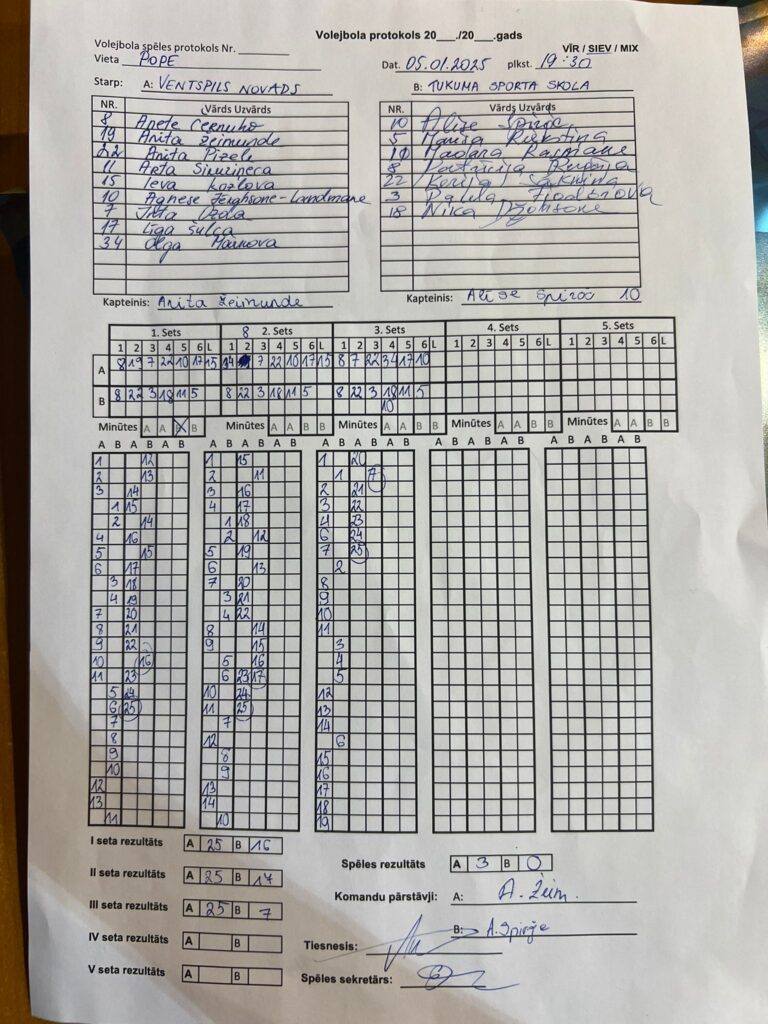 Volejbola protokols 20___./20___.gads
Volejbola spēles protokols Nr. ________
VĪR / SIEV / MIX
Vieta POPE
Dat. 05.01.2025 plkst. 19:30
Starp: A: VENTSPILS NOVADS
B: TUKUMA SPORTA SKOLA
NR. Vārds Uzvārds
8 Anete Cernuho
19 Anita Žeimunde
22 Anita Pizele
11 Arta
15 Ieva Kozlova
10 Agnese Zeighsone-Landmane
7 Inta
17 Līga Šulca
34 Olga
NR. Vārds Uzvārds
10 Alise
5
10 Madara
8 Patrīcija
22
3 Paula
18 Nika Džonsone
Kapteinis: Anita Žeimunde
Kapteinis: Alise 10
1. Sets 8 2. Sets 3. Sets 4. Sets 5. Sets
1 2 3 4 5 6 L 1 2 3 4 5 6 L 1 2 3 4 5 6 L 1 2 3 4 5 6 L 1 2 3 4 5 6 L
A 8 19 7 22 10 17 15 34 7 22 10 17 15 8 7 22 34 17 10
B 8 22 3 18 11 5 8 22 3 18 11 5 8 22 3 18 11 5
10
Minūtes A A B Minūtes A A B B Minūtes A A B B Minūtes A A B B Minūtes A A B B
A B A B A B A B A B A B A B A B A B A B A B A B A B A B A B
1 12 1 15 1 20
2 13 2 11 1 7
3 14 3 16 2 21
1 15 4 17 3 22
2 14 1 18 4 23
4 16 2 12 6 24
5 15 5 19 7 25
6 17 6 13 2
3 18 7 20 8
4 19 3 21 9
7 20 4 22 10
8 21 8 14 11
9 22 9 15 3
10 16 5 16 4
11 23 6 23 17 5
5 24 10 24 12
6 25 11 25 13
7 7 14
8 12 6
9 8 15
10 9 16
12 13 17
13 14 18
11 10 19
I seta rezultāts A 25 B 16
II seta rezultāts A 25 B 17
III seta rezultāts A 25 B 7
IV seta rezultāts A B
V seta rezultāts A B
Spēles rezultāts A 3 B 0
Komandu pārstāvji: A: A. Žeim.
B: A. Spirģe
Tiesnesis:
Spēles sekretārs: